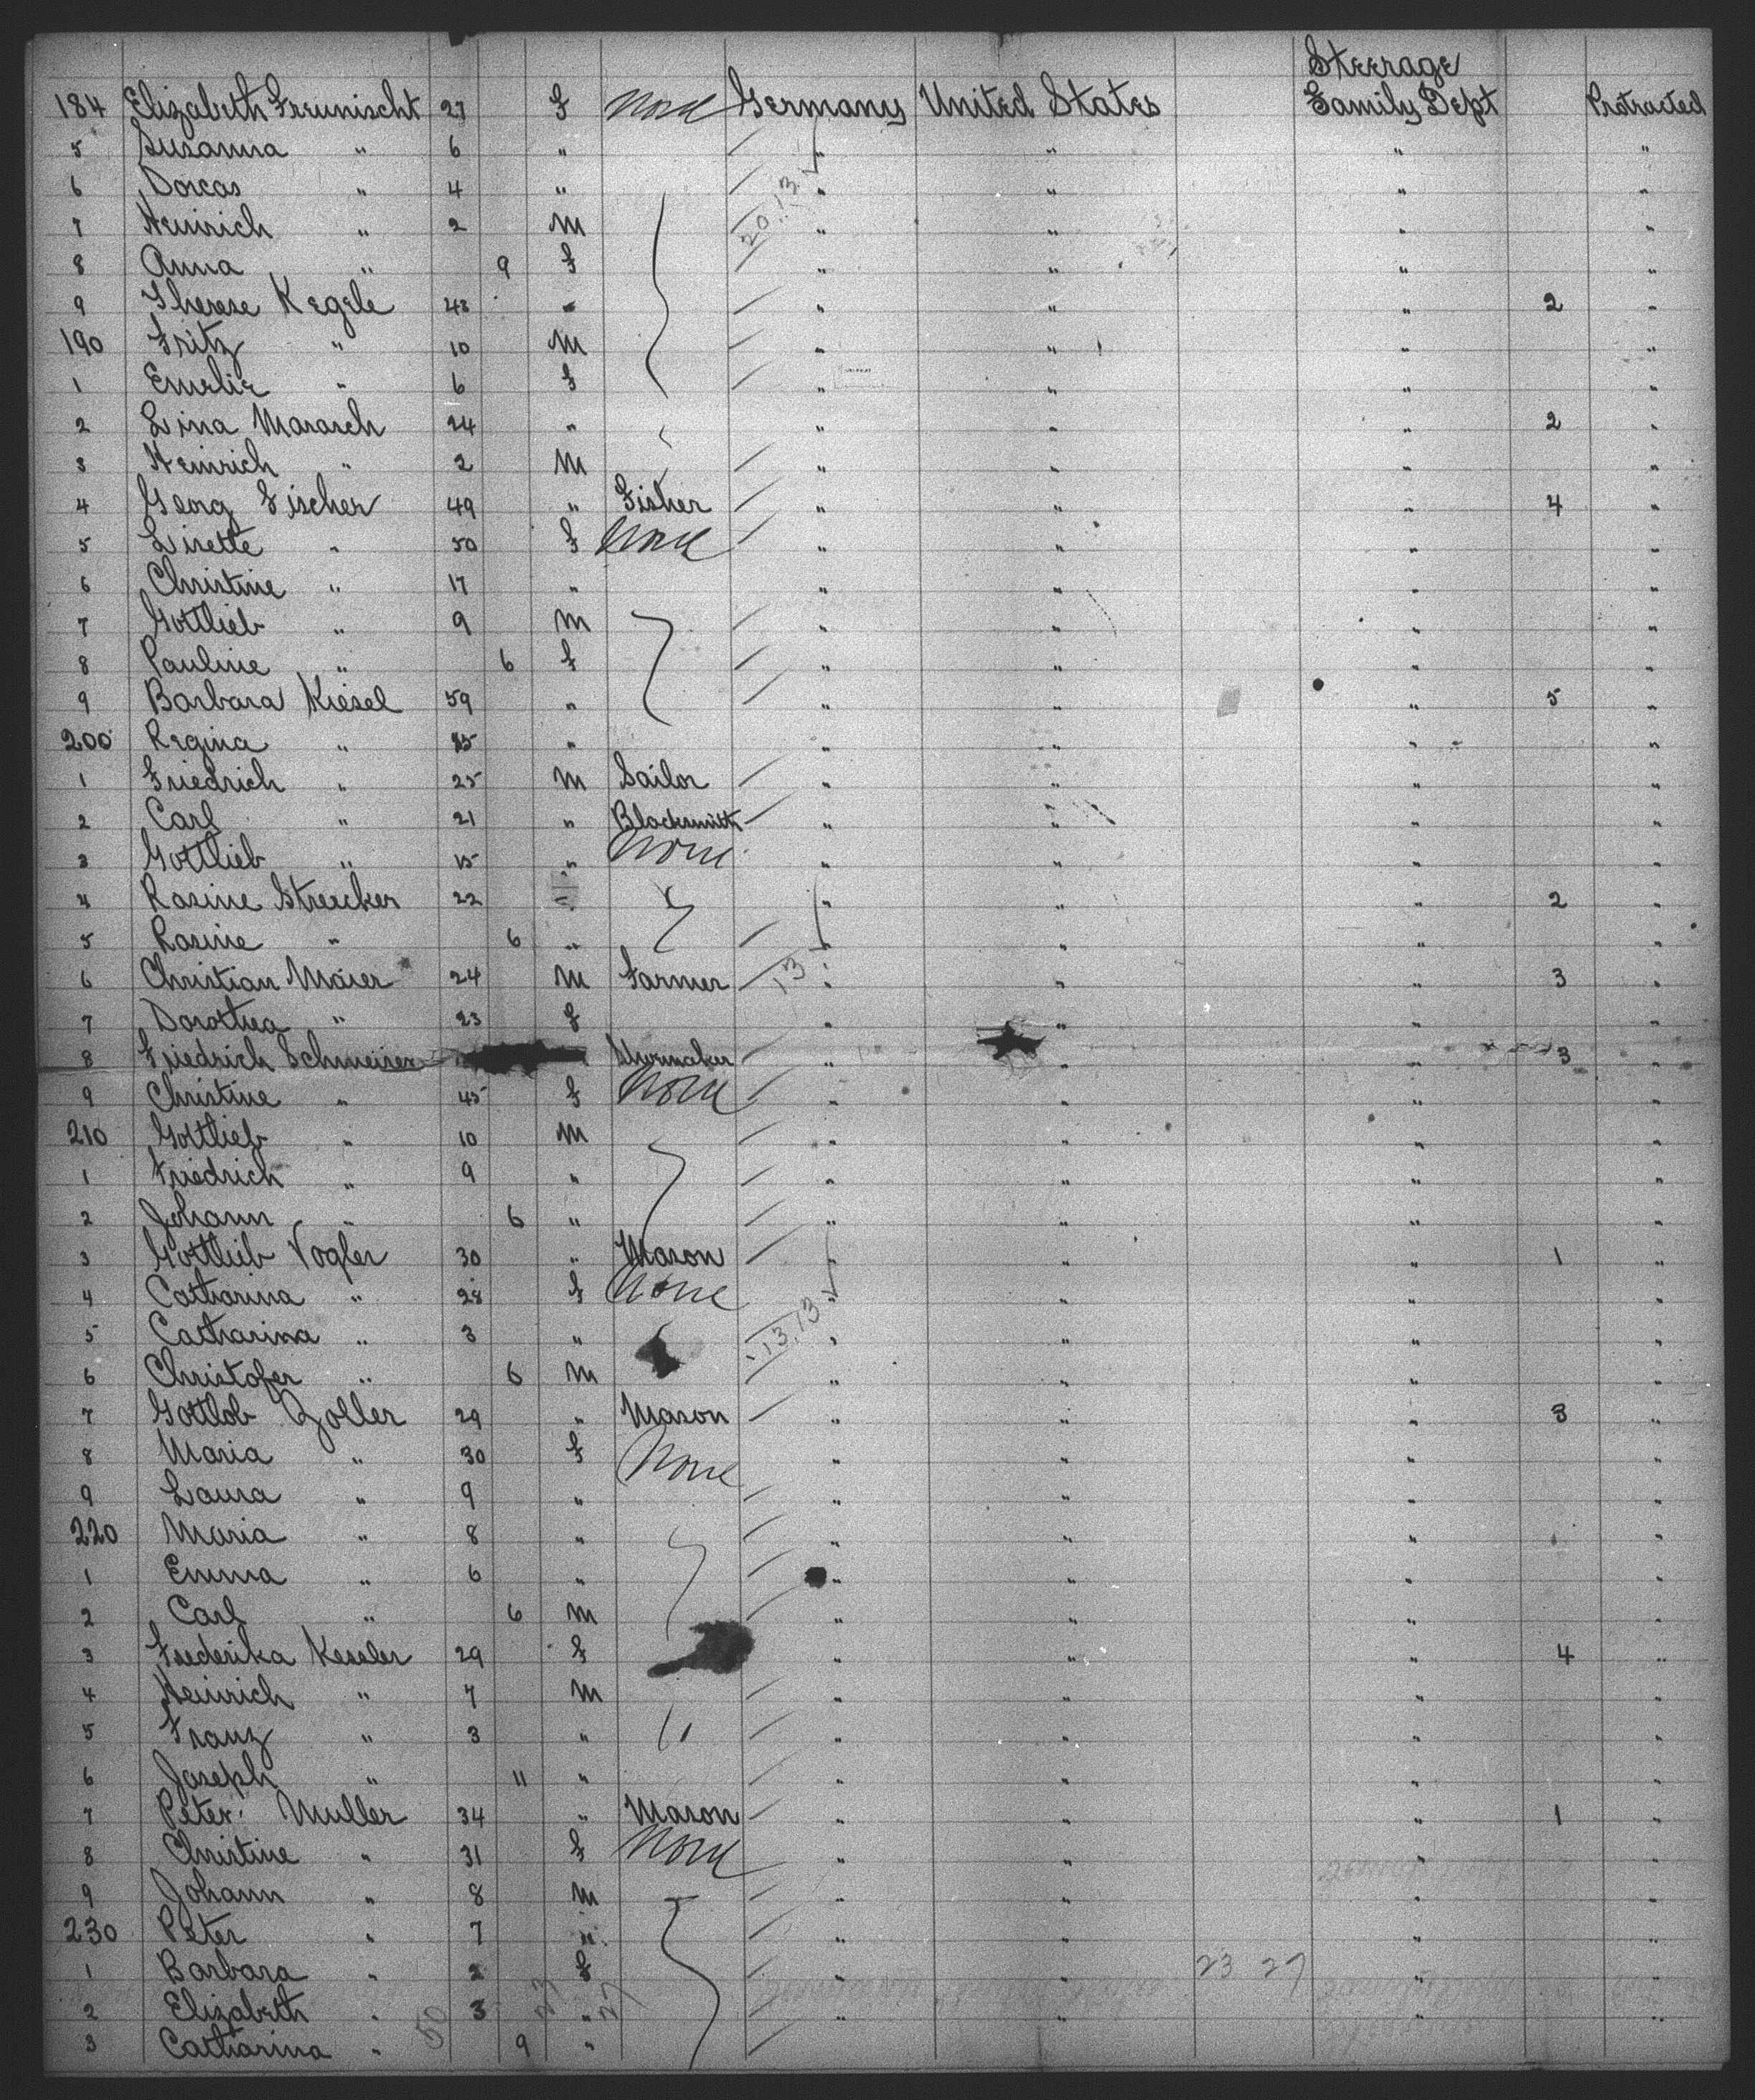 Steerage
184 Elizabeth Freunischt 27 f None Germany United States Family Dept Protracted
5 Susanna " 6 " " " " "
6 Dorcas " 4 " " " " "
7 Heinrich " 2 M " " " "
8 Anna " 9 f " " " "
9 Therese Kegele 43 " " " " 2 "
190 Fritz " 10 M " " " "
1 Emelie " 6 f " " " "
2 Lina Mararch 24 " " " " 2 "
3 Heinrich " 2 M " " " "
4 Georg Fischer 49 " Fisher " " " 4 "
5 Lisette " 50 f None " " " "
6 Christine " 17 " " " " "
7 Gottlieb " 9 M " " " "
8 Pauline " 6 f " " " "
9 Barbara Kiesel 59 " " " " 5 "
200 Regina " " " " " "
1 Friedrich " 25 M Sailor " " " "
2 Carl " 21 " Blacksmith " " " "
3 Gottlieb " 15 " None " " " "
4 Rosine Strecker 22 " " " " 2 "
5 Rosine " 6 " " " " "
6 Christian Maier 24 M Farmer 13 " " " 3 "
7 Dorothea " 23 f " " " "
8 Friedrich Schmeiser " " " 3 "
9 Christine " 45 f None " " " "
210 Gottlieb " 10 M " " " "
1 Friedrich " 9 " " " " "
2 Johann " 6 " " " " "
3 Gottlieb Vogler 30 " Mason " " " 1 "
4 Catharina " 28 f None " " " "
5 Catharina " 3 " 13.13 " " " "
6 Christofer " 6 M " " " "
7 Gottlob Zoller 29 " Mason " " " 3 "
8 Maria " 30 f None " " " "
9 Laura " 9 " " " " "
220 Maria " 8 " " " " "
1 Emma " 6 " " " " "
2 Carl " 6 M " " " "
3 Frederika Kessler 29 f " " " 4 "
4 Heinrich " 7 M " " " "
5 Franz " 3 " " " " "
6 Joseph " 11 " " " " "
7 Peter Muller 34 " Mason " " " 1 "
8 Christine " 31 f None " " " "
9 Johann " 8 M " " " "
230 Peter " 7 " " " " "
1 Barbara " 2 f " " 23 27 " "
2 Elizabeth " 3 " " " " "
3 Catharina " 50 9 "